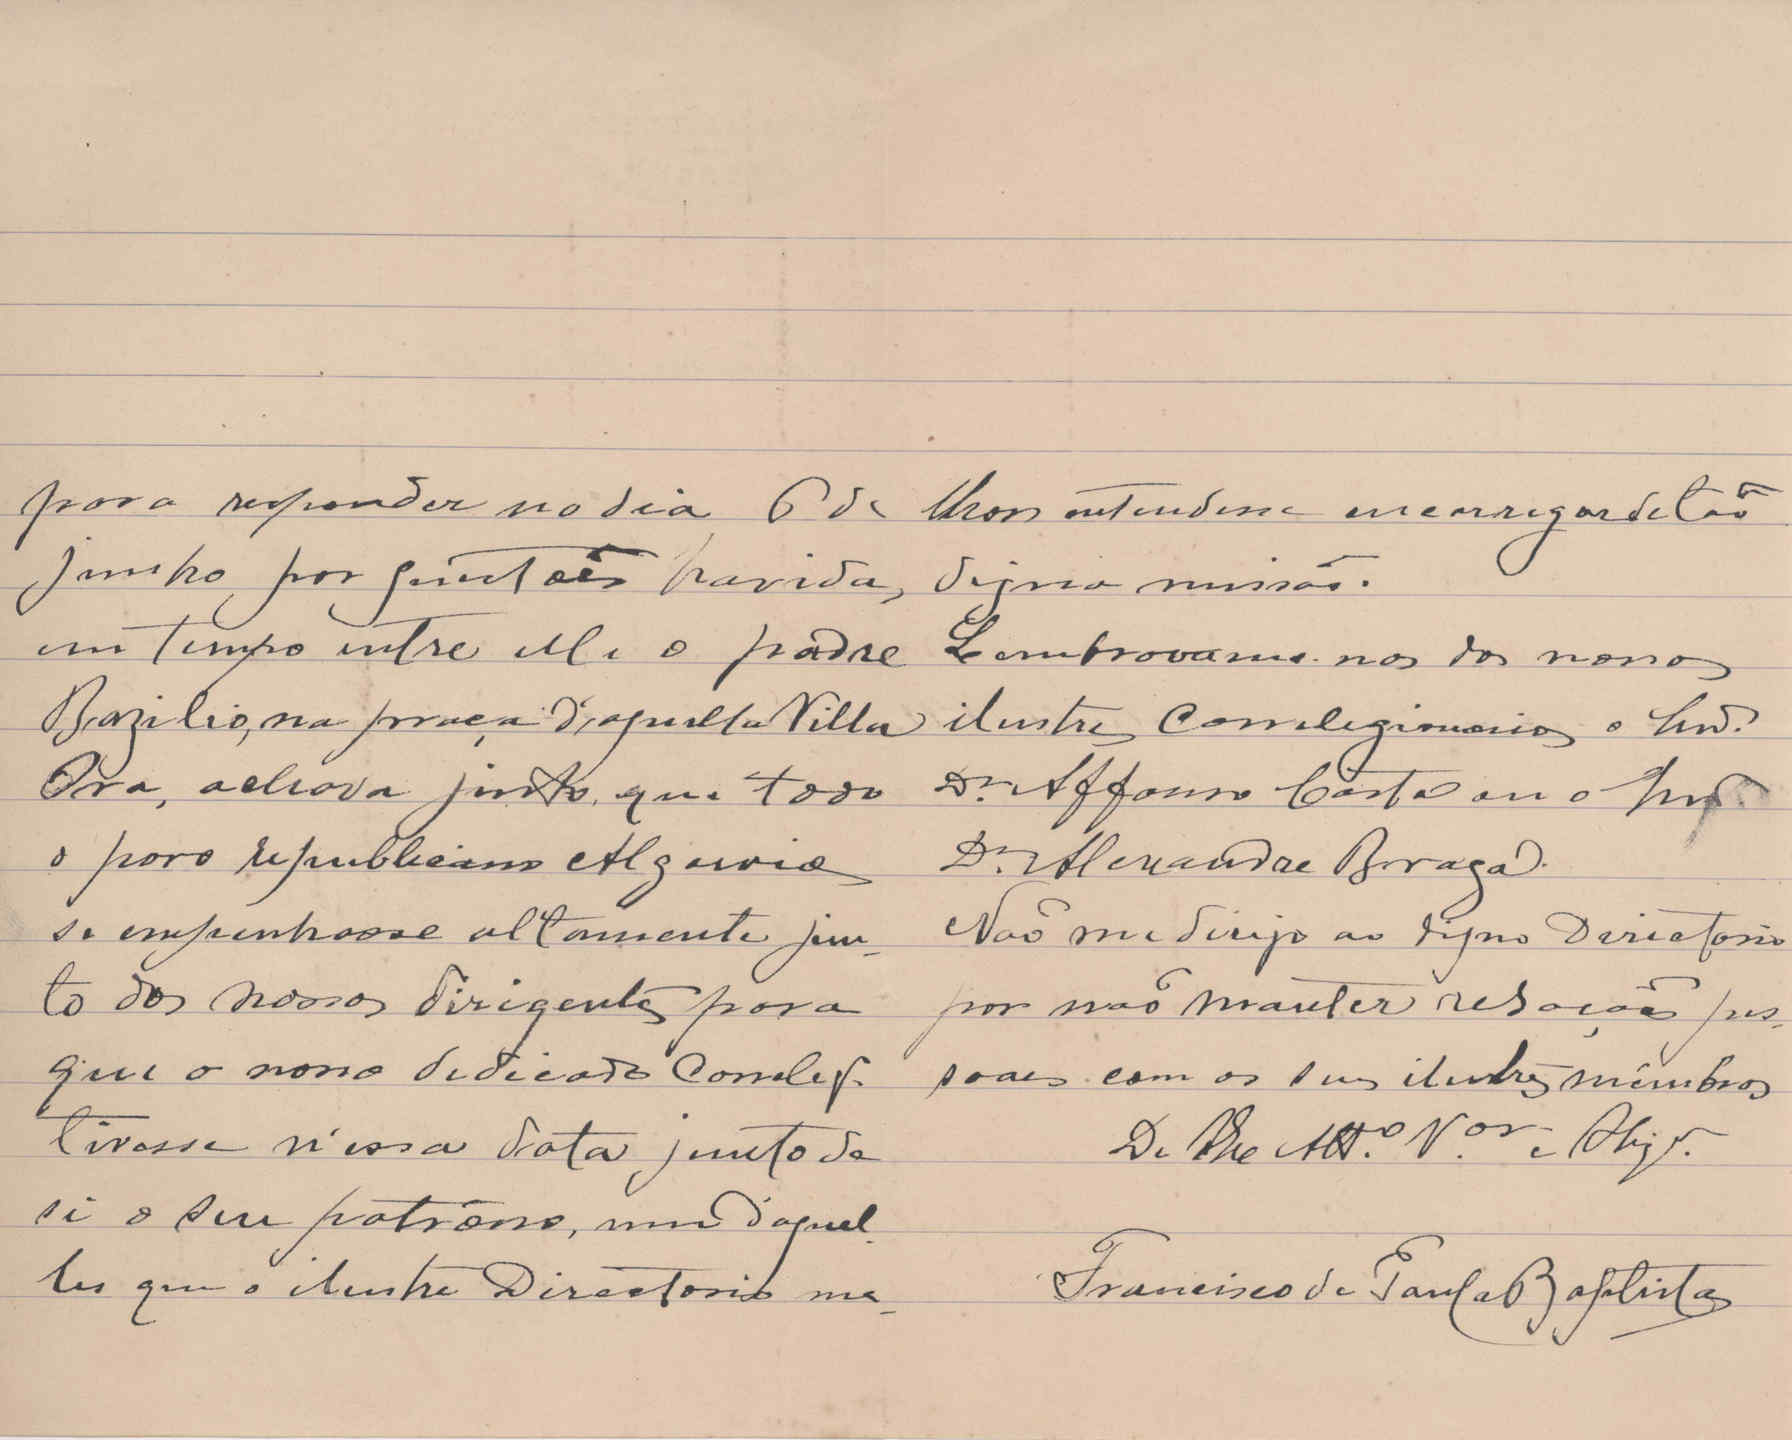 para responder no dia 6 de
junho por questões havida,
em tempo entre elle e o padre
Bazilio, na praça d'aquella Villa
Ora, achava justo, que todo
o povo republicano Algarvio
se empenhasse altamente jun-
to dos nossos dirigentes para
que o nosso dedicado Correlig.
tivesse n'essa data junto de
si o seu patrono, um d'aquel-
les que o ilustre Directorio me-
lhor entendesse encarregar de tão
digna missão.
Lembravamo-nos dos nossos
ilustres Correlegionarios o Snr.
Dr. Affonso Costa ou o Snr.
Dr. Alexandre Braga.
Não me dirijo ao digno Directorio
por não manter relações pes-
soaes com os seus ilustres membros
De V. Att.º V.or e Obrg.
Francisco de Paula Baptista